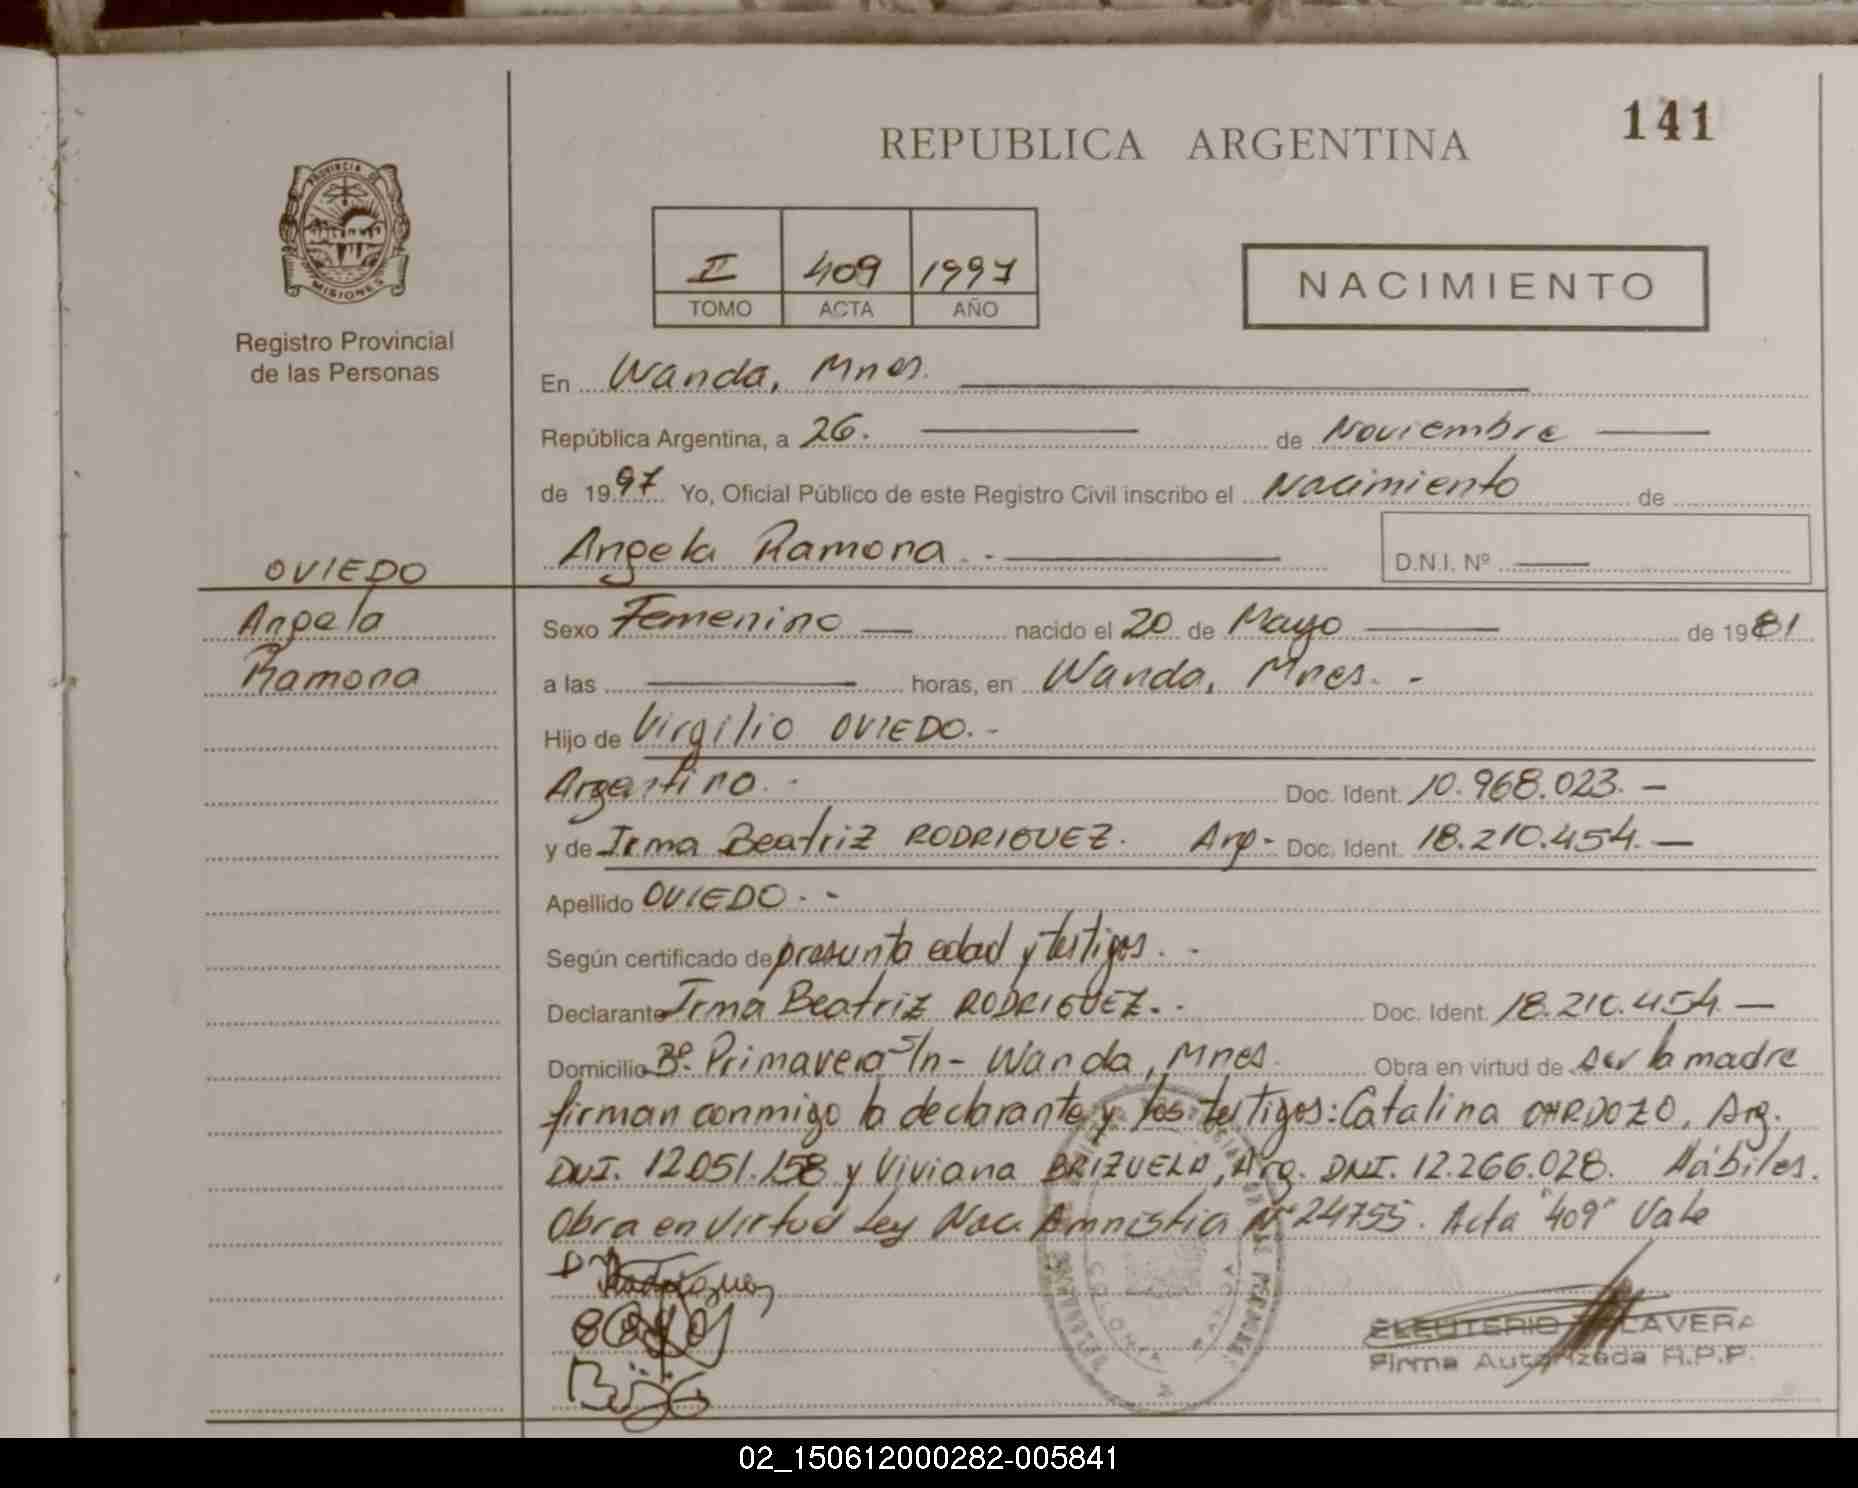 141
REPUBLICA ARGENTINA
PROVINCIA DE
MISIONES
Registro Provincial
de las Personas
II 409 1997
TOMO ACTA AÑO
NACIMIENTO
En Wanda, Mnes.
República Argentina, a 26. de Noviembre
de 1997 Yo, Oficial Público de este Registro Civil inscribo el Nacimiento de
Angela Ramona.-
D.N.I. Nº
OVIEDO
Angela
Ramona
Sexo Femenino nacido el 20 de Mayo de 1981
a las horas, en Wanda, Mnes.-
Hijo de Virgilio OVIEDO.-
Argentino.- Doc. Ident. 10.968.023.-
y de Irma Beatriz RODRIGUEZ. Arg- Doc. Ident. 18.210.454.-
Apellido OVIEDO.-
Según certificado de presunta edad y testigos.-
Declarante Irma Beatriz RODRIGUEZ.- Doc. Ident. 18.210.454.-
Domicilio Bº. Primavera S/n- Wanda, Mnes. Obra en virtud de ser la madre
firman conmigo la declarante y los testigos: Catalina CARDOZO, Arg.
DNI. 12.051.158 y Viviana BRIZUELA, Arg. DNI. 12.266.028. Hábiles.
Obra en virtud Ley Nac. Amnistia Nº 24755. Acta "409" Vale
ELEUTERIO TALAVERA
Firma Autorizada R.P.P.
02_150612000282-005841